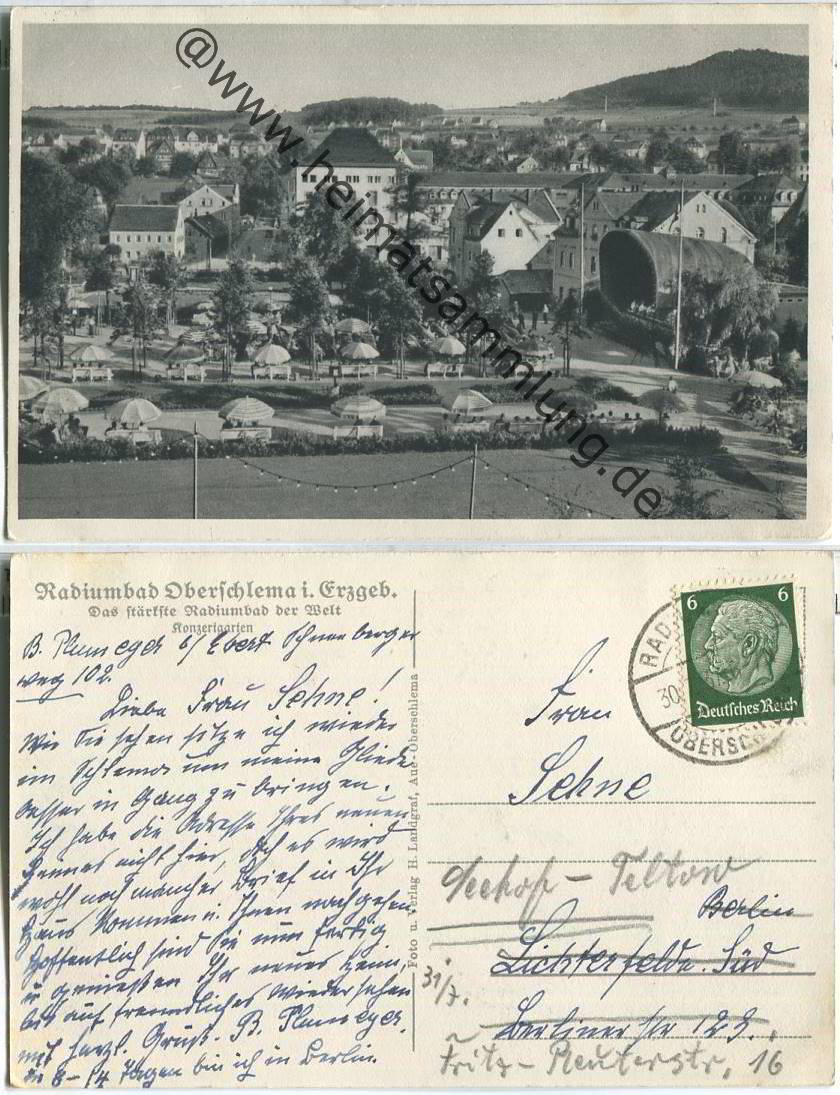 @www.heimatsammlung.de
Radiumbad Oberschlema i. Erzgeb.
Das stärkste Radiumbad der Welt
Konzertgarten
B. Plumeyer b/ Ebert Schneeberger
weg 102.
Liebe Frau Sehne!
Wie Sie sehen sitze ich wieder
im Schlema um meine Glieder
besser in Gang zu bringen.
Ich habe die Adresse Ihres neuen
Heimes nicht hier, doch es wird
wohl noch mancher Brief in Ihr
Haus kommen u. Ihnen nachgehen.
Hoffentlich sind Sie nun fertig
u genießen Ihr neues Heim,
bis auf freundliches Wiedersehen
mit herzl. Gruß. B. Plumeyer.
in 8-14 Tagen bin ich in Berlin.
Foto u. Verlag H. Landgraf, Aue-Oberschlema
RAD
30
OBERSCH
6 6
Deutsches Reich
Frau
Sehne
Seehof - Teltow
Berlin
Lichterfelde. Süd
31/7.
Berlinerstr 129.
Fritz-Reuterstr. 16